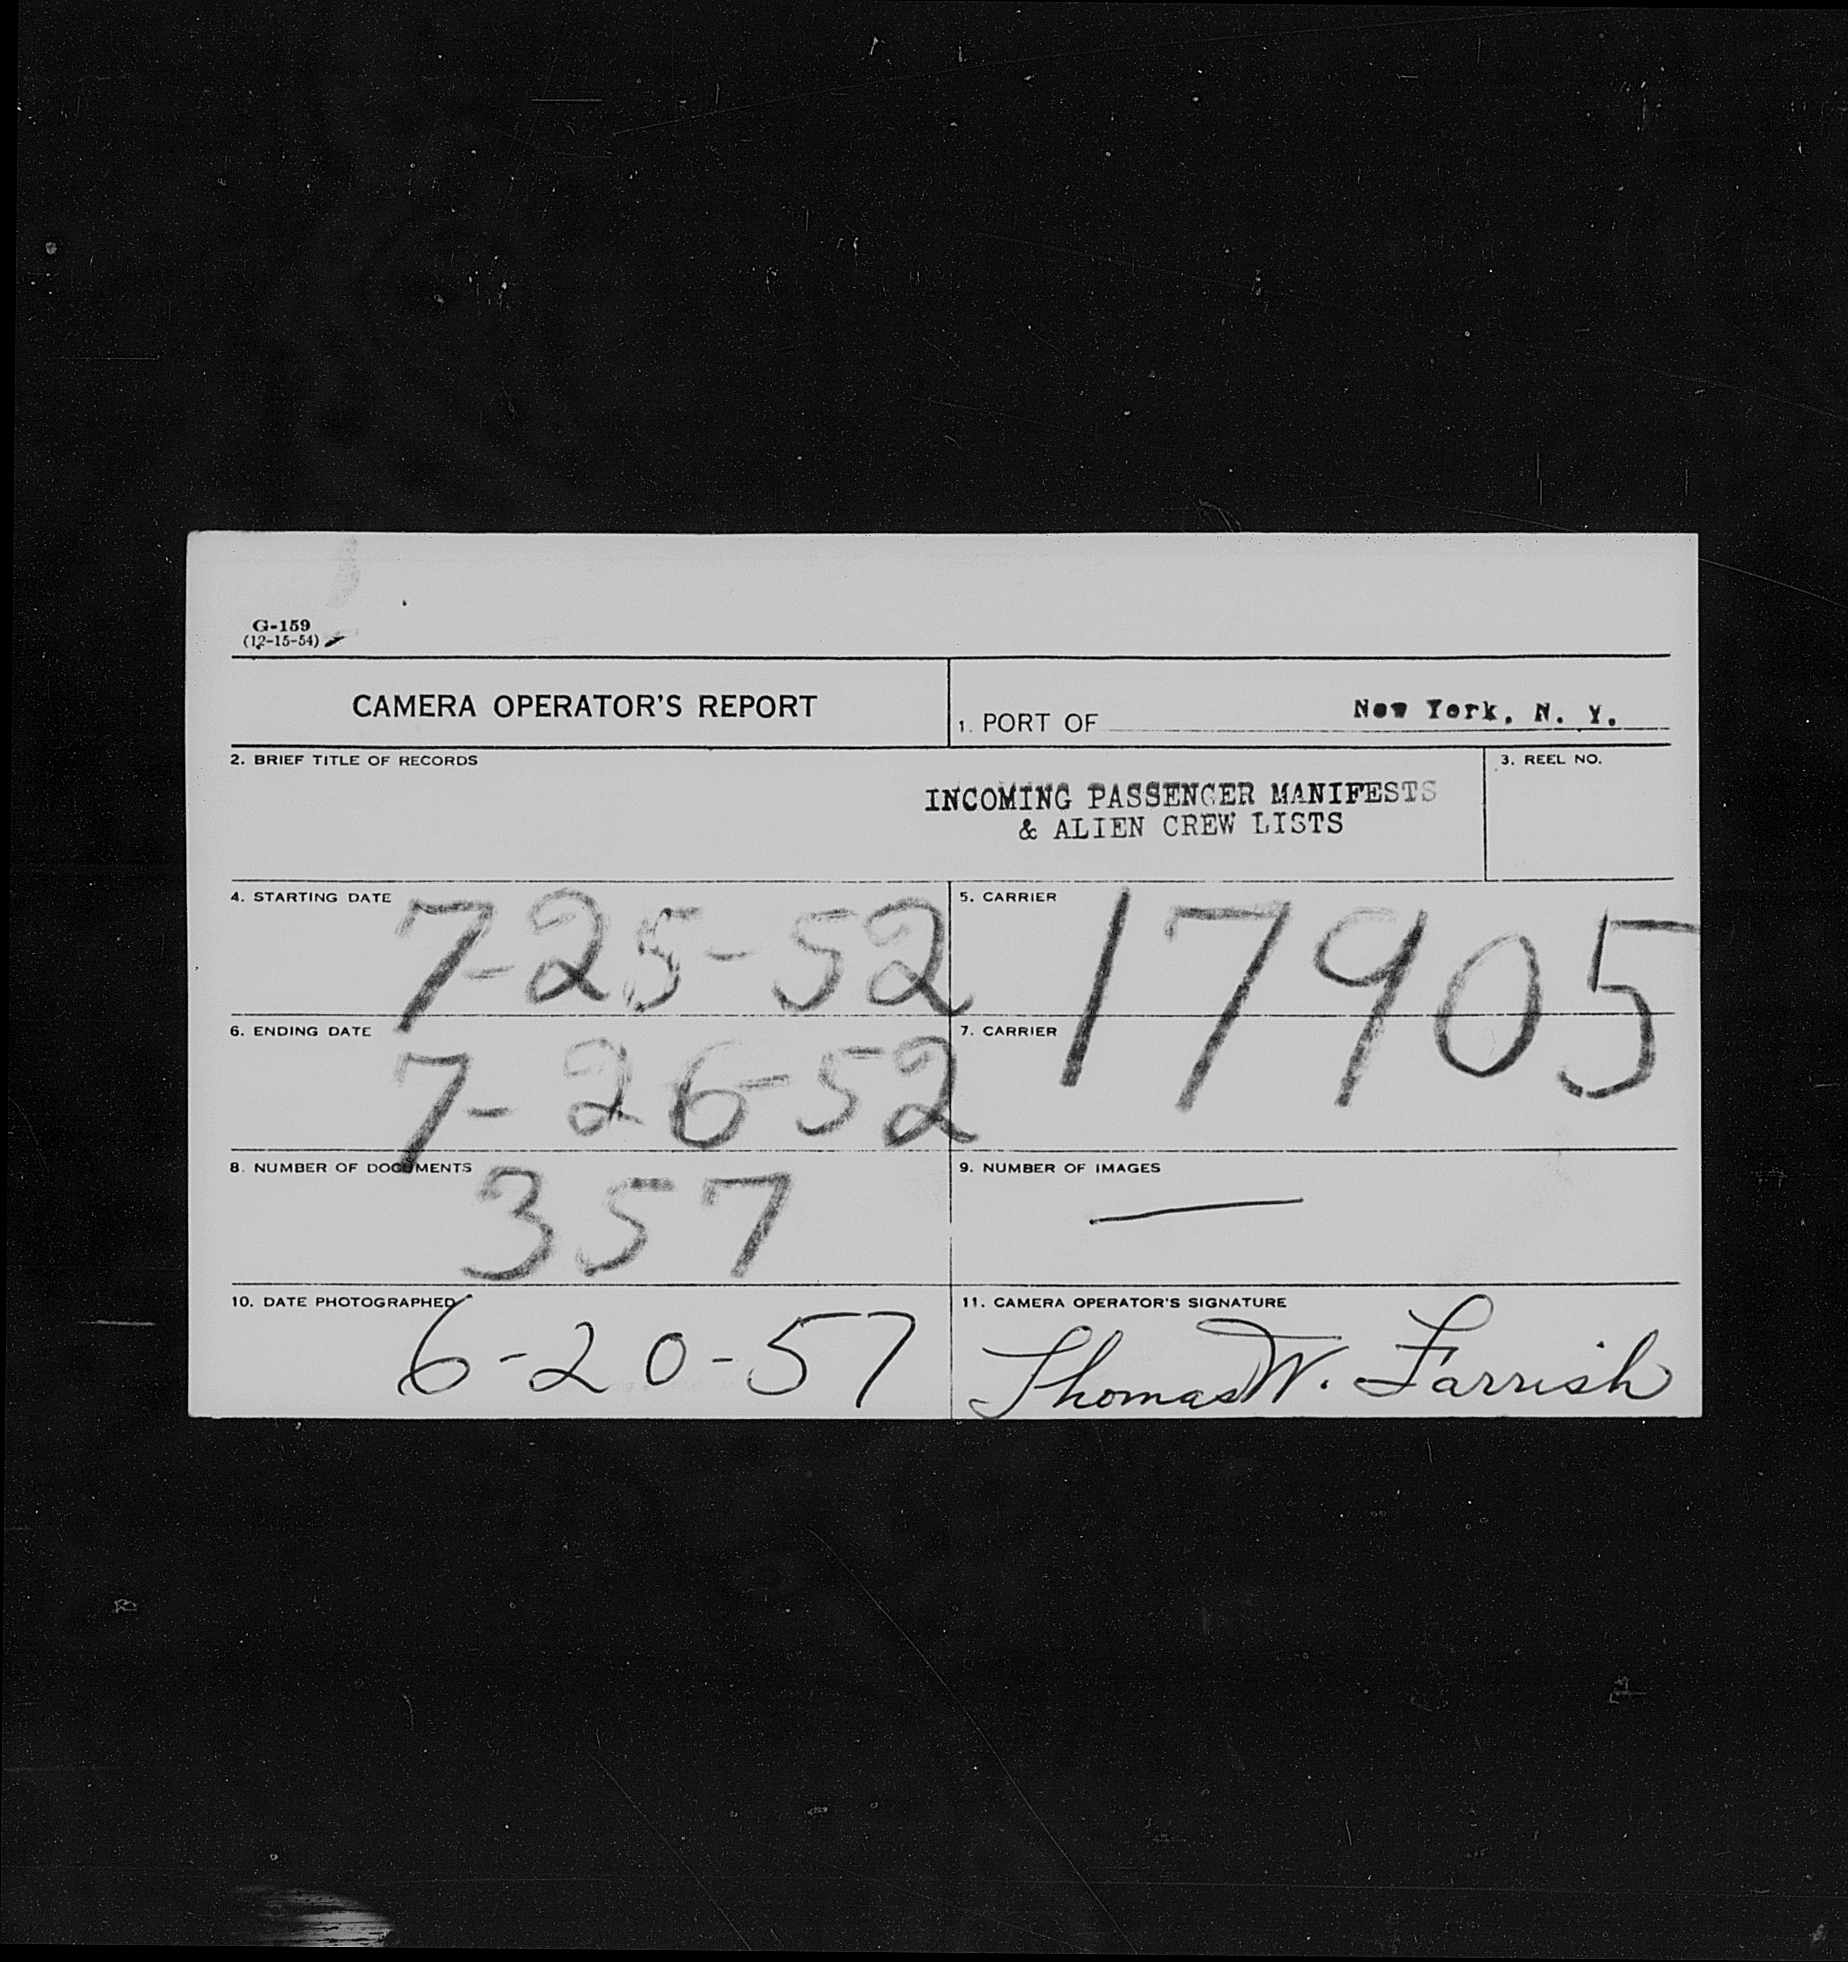 G-159
(12-15-54)
CAMERA OPERATOR'S REPORT
1. PORT OF New York, N. Y.
2. BRIEF TITLE OF RECORDS
INCOMING PASSENGER MANIFESTS
& ALIEN CREW LISTS
3. REEL NO.
4. STARTING DATE 7-25-52
5. CARRIER 17905
6. ENDING DATE 7-26-52
7. CARRIER
8. NUMBER OF DOCUMENTS 357
9. NUMBER OF IMAGES —
10. DATE PHOTOGRAPHED 6-20-57
11. CAMERA OPERATOR'S SIGNATURE
Thomas W. Farrish